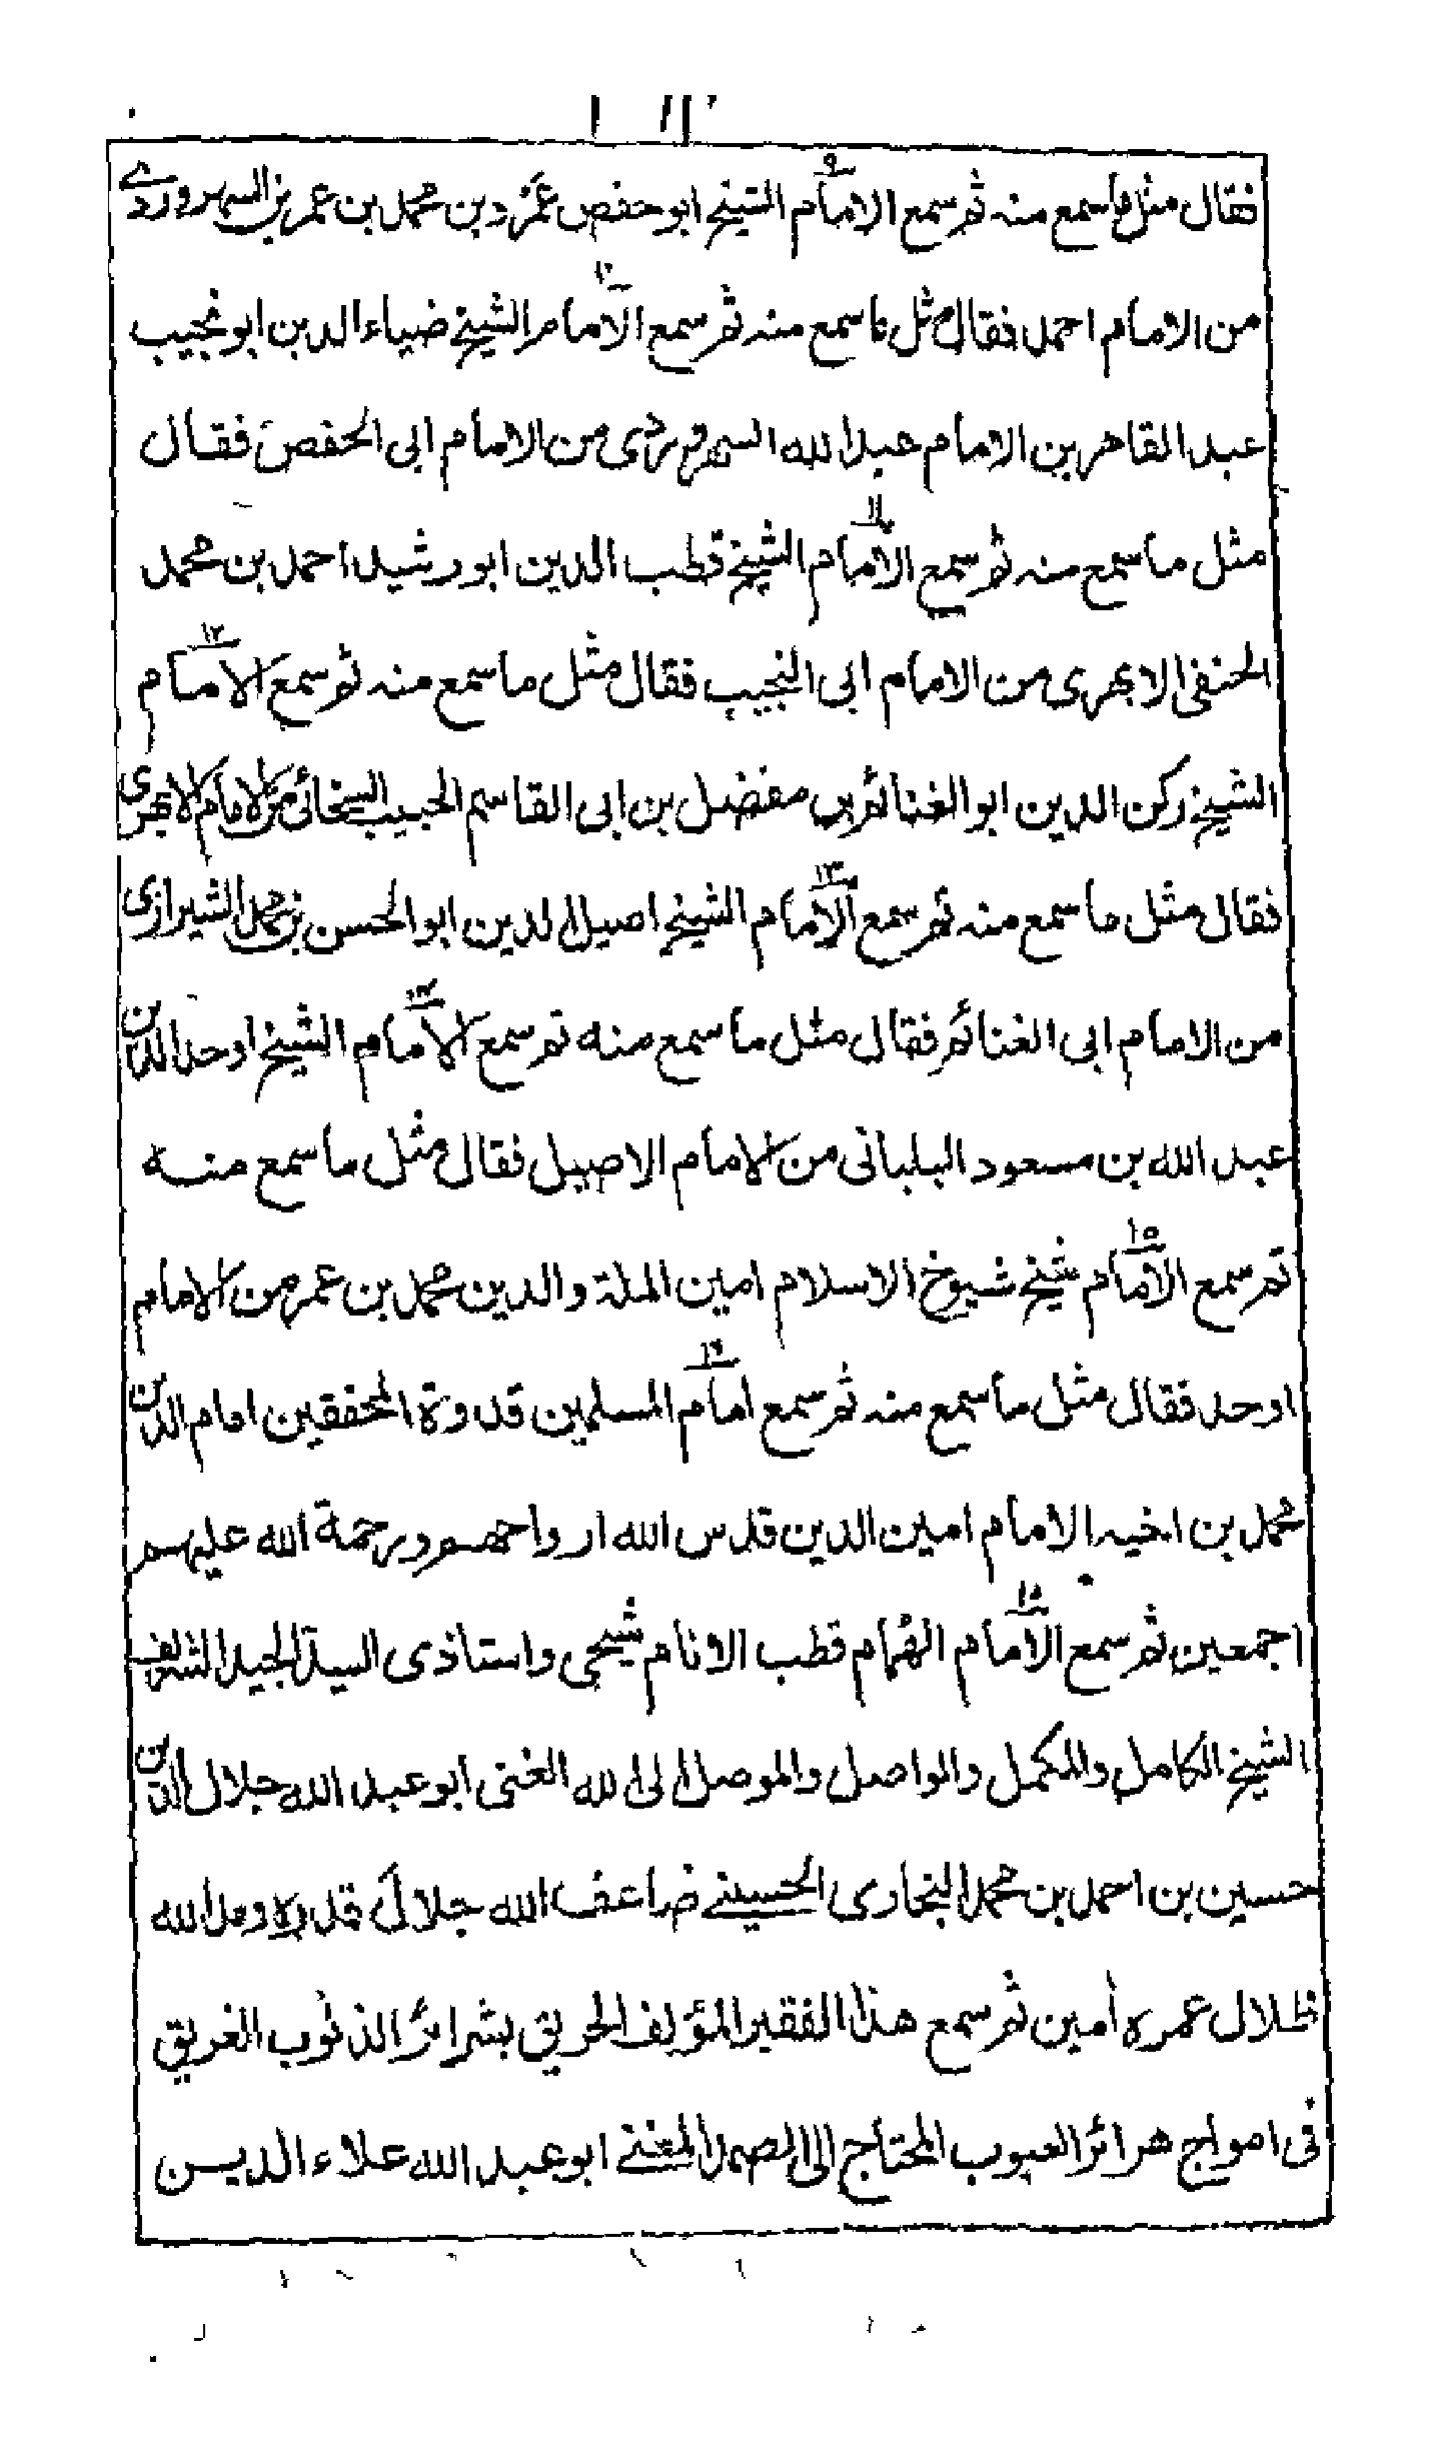 فقال مثل ما سمع منه ثم سمع الامام الشيخ ابو حفص عمر و بن محمد بن عمر بن السهروردے
من الامام احمد فقال مثل ما سمع منه ثم سمع الامام الشيخ ضياء الدين ابو نجيب
عبد القاهر بن الامام عبد الله السهروردى من الامام ابى الحفص فقال
مثل ما سمع منه ثم سمع الامام الشيخ قطب الدين ابو رشيد احمد بن محمد
الحنفى الابهرى من الامام ابى النجيب فقال مثل ما سمع منه ثم سمع الامام
الشيخ ركن الدين ابو الغنائم بن مفضل بن ابى القاسم الحبيب السخائى من الامام الابهرى
فقال مثل ما سمع منه ثم سمع الامام الشيخ اصيل الدين ابو الحسن بن محمد الشيرازى
من الامام ابى الغنائم فقال مثل ما سمع منه ثم سمع الامام الشيخ اوحد الدين
عبد الله بن مسعود البلبانى من الامام الاصيل فقال مثل ما سمع منه
ثم سمع الامام شيخ شيوخ الاسلام امين الملة والدين محمد بن عمر من الامام
اوحد فقال مثل ما سمع منه ثم سمع امام المسلمين قدوة المحققين امام الدين
محمد بن اخيه الامام امين الدين قدس الله ارواحهم ورحمة الله عليهم
اجمعين ثم سمع الامام الهُمام قطب الانام شيخى واستاذى السيد الجيد الشريف
الشيخ الكامل والمكمل والواصل والموصل الى الله الغنى ابو عبد الله جلال الدين
حسين بن احمد بن محمد البخارى الحسينے ضاعف الله جلال قدره ومد الله
ظلال عمره أمين ثم سمع هذا الفقير المؤلف الحريق بشرائر الذنوب الغريق
فى امواج هرائر العيوب المحتاج الى الصمد المغنے ابو عبد الله علاء الدين